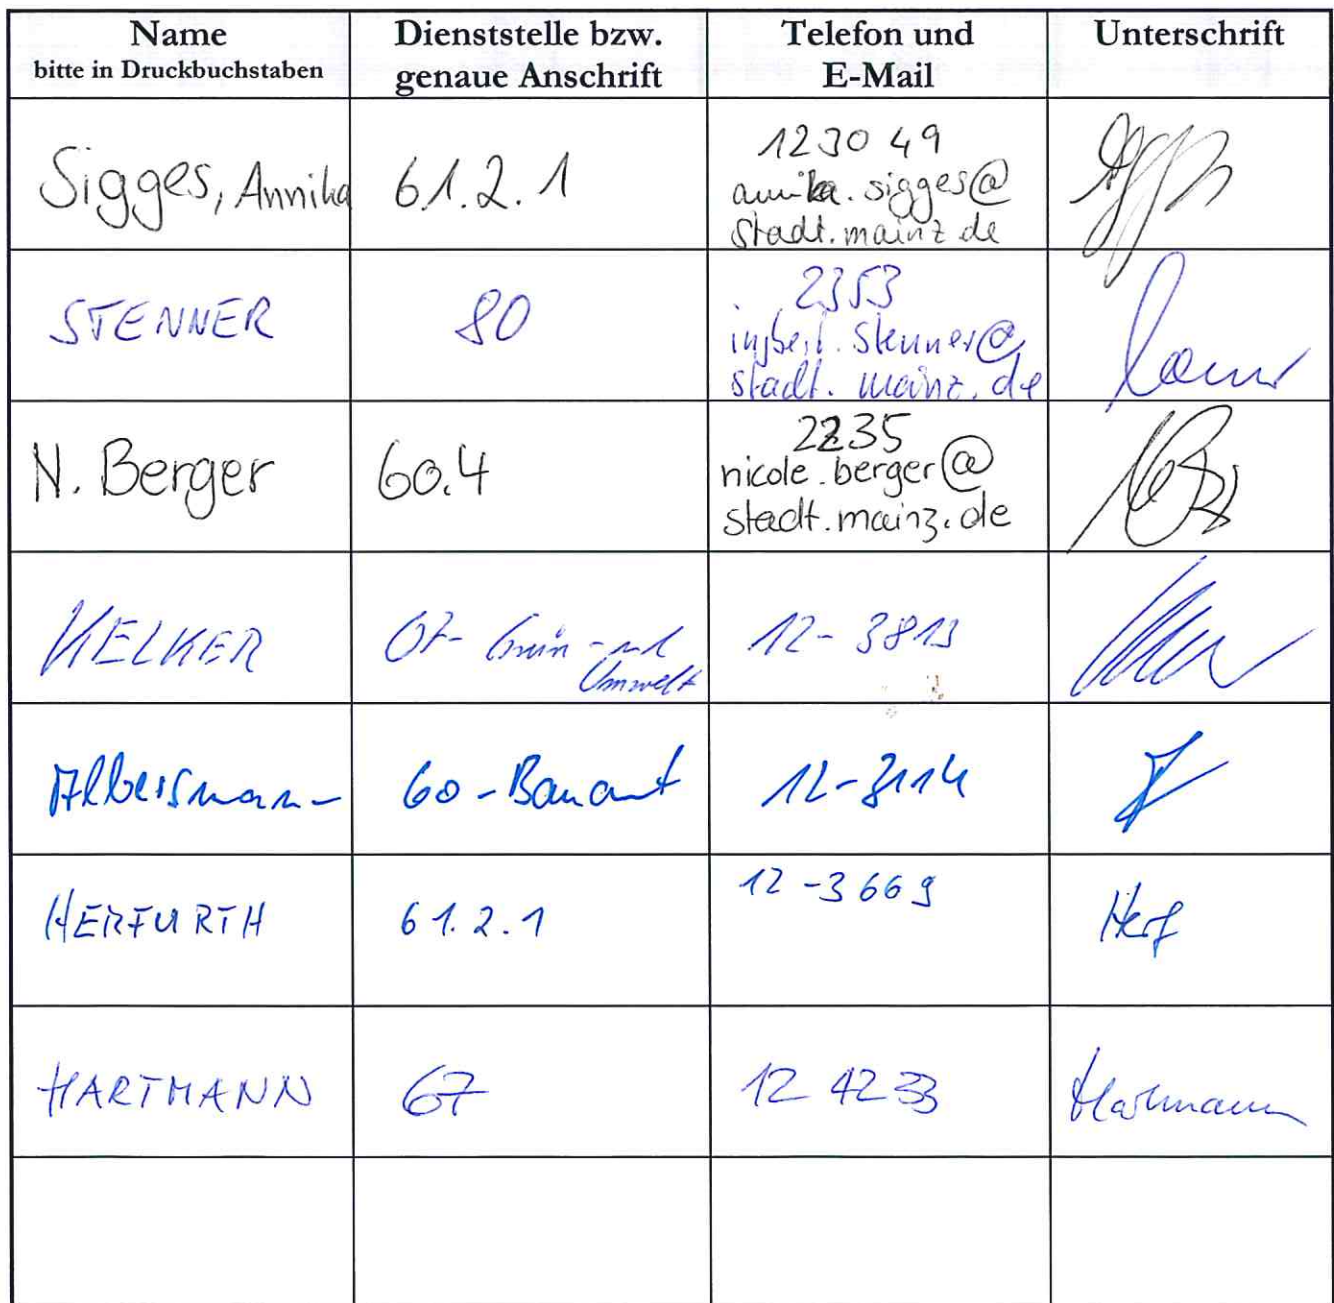 Name
bitte in Druckbuchstaben
Dienststelle bzw.
genaue Anschrift
Telefon und
E-Mail
Unterschrift
Sigges, Annika
61.2.1
123049
annika.sigges@
stadt.mainz.de
STENNER
80
2353
stenner@
stadt.mainz.de
N. Berger
60.4
2235
nicole.berger@
stadt.mainz.de
KELKER
67- Grün- und
Umwelt
12-3813
Albersmann
60-Bauamt
12-3114
HERFURTH
61.2.1
12-3669
Herf
HARTMANN
67
12 42 33
Hartmann